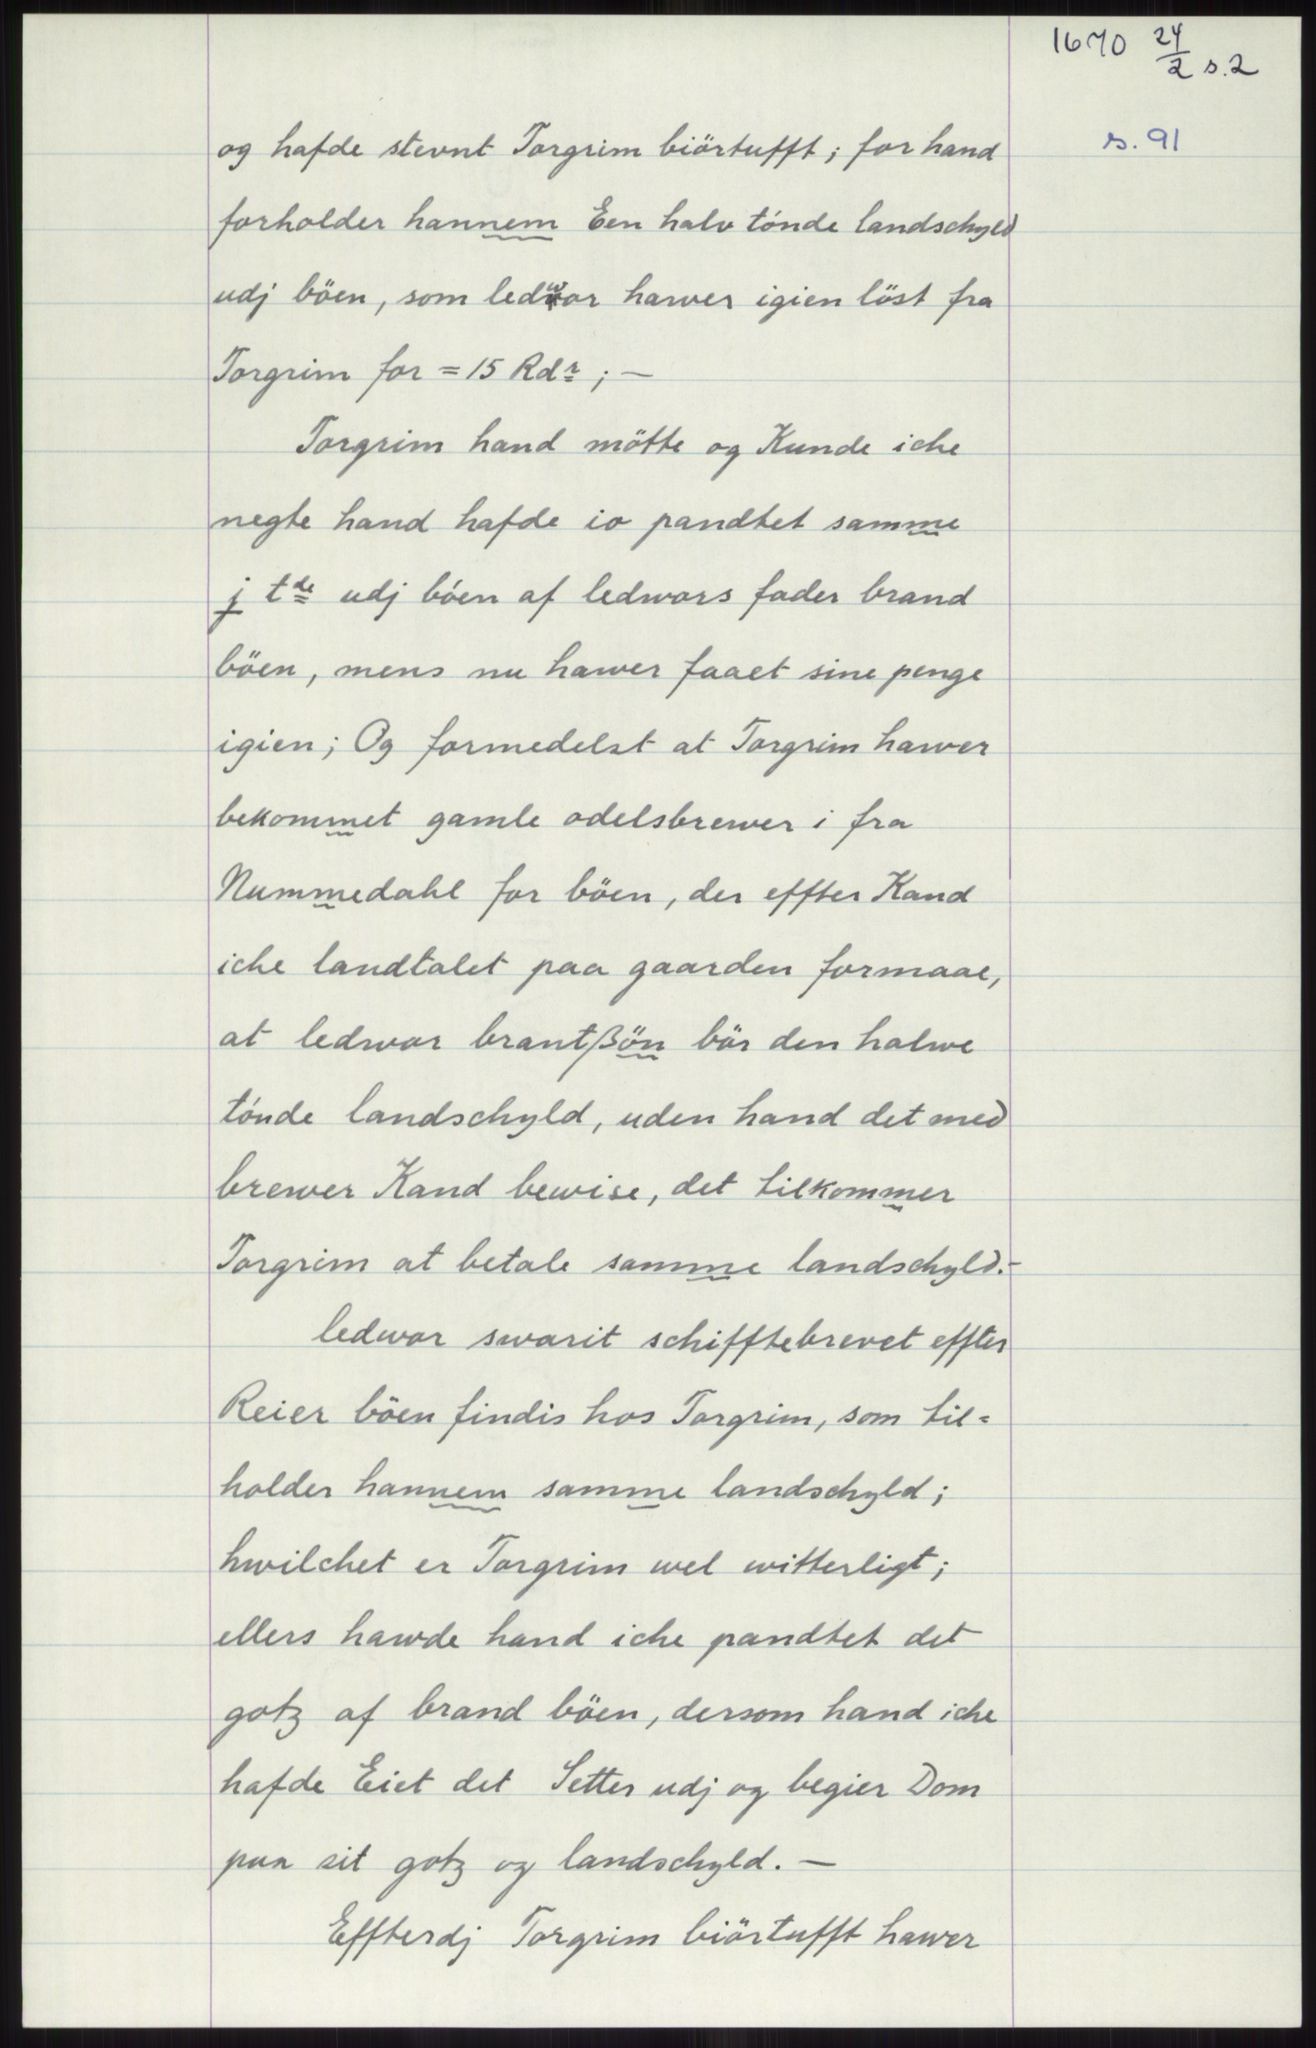 1670 24/2 s.2
s. 91
og hafde stevnt Torgrim biörtufft; for hand
forholder hannem Een halv tónde landschyld
udj böen, som ledwor hawer igien löst fra
Torgrim for = 15 Rdr; —
Torgrim hand mötte og Kunde iche
negte hand hafde io pandtet samme
j tde udj bóen af ledwors fader brand
böen, mens nu hawer faaet sine penge
igien; Og formedelst at Torgrim hawer
bekommet gamle odelsbrewer i fra
Nummedahl for böen, der effter Kand
iche landtalet paa gaarden formaae,
at ledwor brantßön bör den halwe
tónde landschyld, uden hand det med
brewer Kand bewise, det tilkommer
Torgrim at betale samme landschyld.-
ledwor swarit schifftebrevet effter
Reier böen findis hos Torgrim, som til=
holder hannem samme landschyld;
hwilchet er Torgrim wel witterligt;
ellers hawde hand iche pandtet det
gotz af brand böen, dersom hand iche
hafde Eiet det Setter udj og begier Dom
paa sit gotz og landschyld. —
Effterdj Torgrim biörtufft hawer